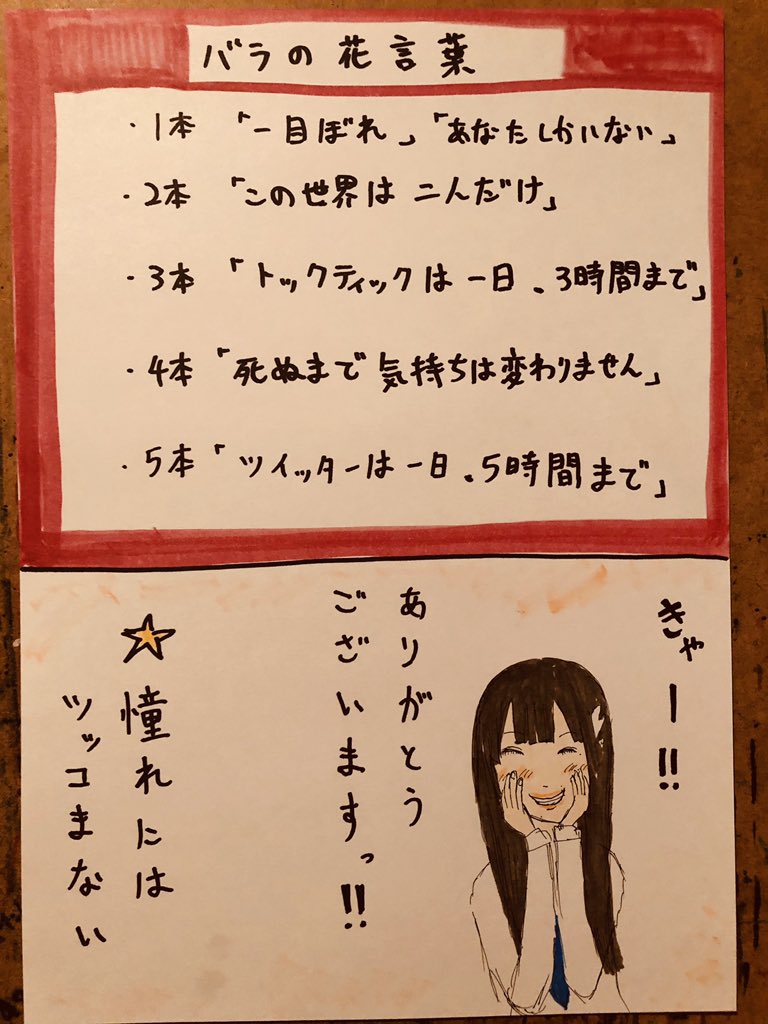 バラの花言葉
・1本 「一目ぼれ」「あなたしかいない」
・2本 「この世界は二んだけ」
・3本 「トックティックは一日、3時間まで」
・4本 「死ぬまで気持ちは変わりません」
・5本 「ツイッターは一日、5時間まで」
きゃー!!
ありがとう
ございますっ!!
☆憧れには
ツッコまない